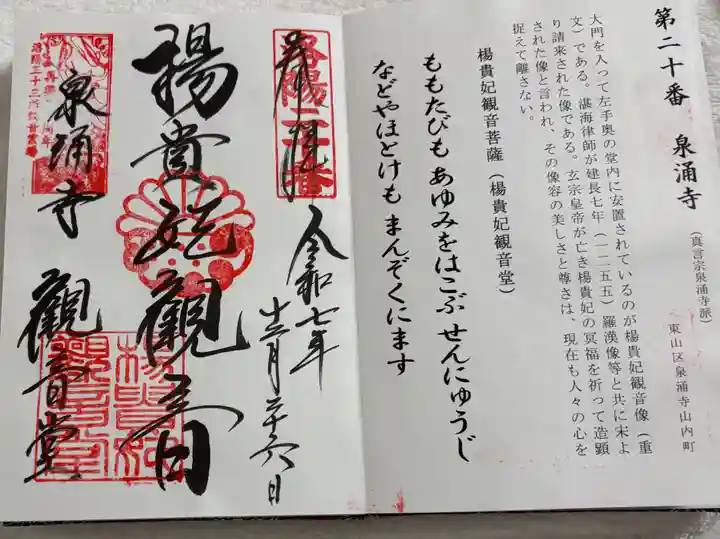 第二十番 泉涌寺
(真言宗泉涌寺派)
東山区泉涌寺山内町
大門を入って左手奥の堂内に安置されているのが楊貴妃観音像(重
文)である。湛海律師が建長七年(一二五五)羅漢像等と共に宋よ
り請来された像である。玄宗皇帝が亡き楊貴妃の冥福を祈って造顕
された像と言われ、その像容の美しさと尊さは、現在も人々の心を
捉えて離さない。
楊貴妃観音菩薩(楊貴妃観音堂)
ももたびも あゆみをはこぶ せんにゅうじ
などやほとけも まんぞくにます
令和七年
十二月二十六日
洛陽二十番
奉拝
楊貴妃觀音
泉涌寺 觀音堂